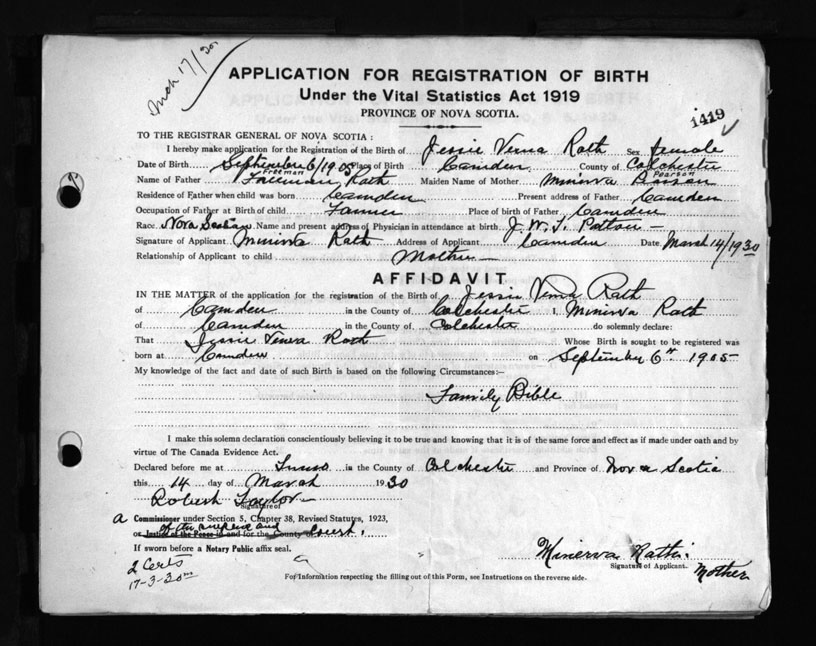 Mch 17/30
APPLICATION FOR REGISTRATION OF BIRTH
Under the Vital Statistics Act 1919
PROVINCE OF NOVA SCOTIA.
1419
TO THE REGISTRAR GENERAL OF NOVA SCOTIA :
I hereby make application for the Registration of the Birth of Jessie Verna Rath Sex female
Date of Birth September 6/1905 Place of Birth Camden County of Colchester
Name of Father Freeman Rath Maiden Name of Mother Minerva Pearson
Residence of Father when child was born Camden Present address of Father Camden
Occupation of Father at Birth of child Farmer Place of birth of Father Camden
Race Nova Scotian Name and present address of Physician in attendance at birth J. W. T. Patton
Signature of Applicant Minerva Rath Address of Applicant Camden Date March 14/1930
Relationship of Applicant to child Mother
AFFIDAVIT
IN THE MATTER of the application for the registration of the Birth of Jessie Verna Rath
of Camden in the County of Colchester I, Minerva Rath
of Camden in the County of Colchester do solemnly declare:
That Jessie Verna Rath Whose Birth is sought to be registered was
born at Camden on September 6th 1905
My knowledge of the fact and date of such Birth is based on the following Circumstances:—
Family Bible
I make this solemn declaration conscientiously believing it to be true and knowing that it is of the same force and effect as if made under oath and by
virtue of The Canada Evidence Act.
Declared before me at Truro in the County of Colchester and Province of Nova Scotia
this 14 day of March 1930
Robert Taylor
Signature of
A Commissioner under Section 5, Chapter 38, Revised Statutes, 1923,
of the Supreme Court.
or Justice of the Peace in and for the County of
If sworn before a Notary Public affix seal.
2 Certs
17-3-30
Minerva Rath
Signature of Applicant.
Mother
For Information respecting the filling out of this Form, see Instructions on the reverse side.